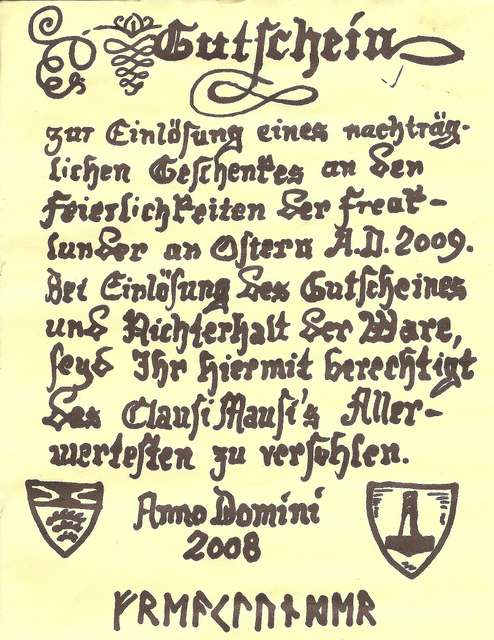 Gutschein
zur Einlösung eines nachträg-
lichen Geschenkes an den
Feierlichkeiten der Freak-
lunder an Ostern A.D. 2009.
Bei Einlösung des Gutscheines
und Nichterhalt der Ware,
seyd Ihr hiermit berechtigt
des Clausi Mausi's Aller-
wertesten zu versohlen.
Anno Domini
2008
ᚠᚱᛖᚨᚲᛚᚢᚾᛞᛖᚱ